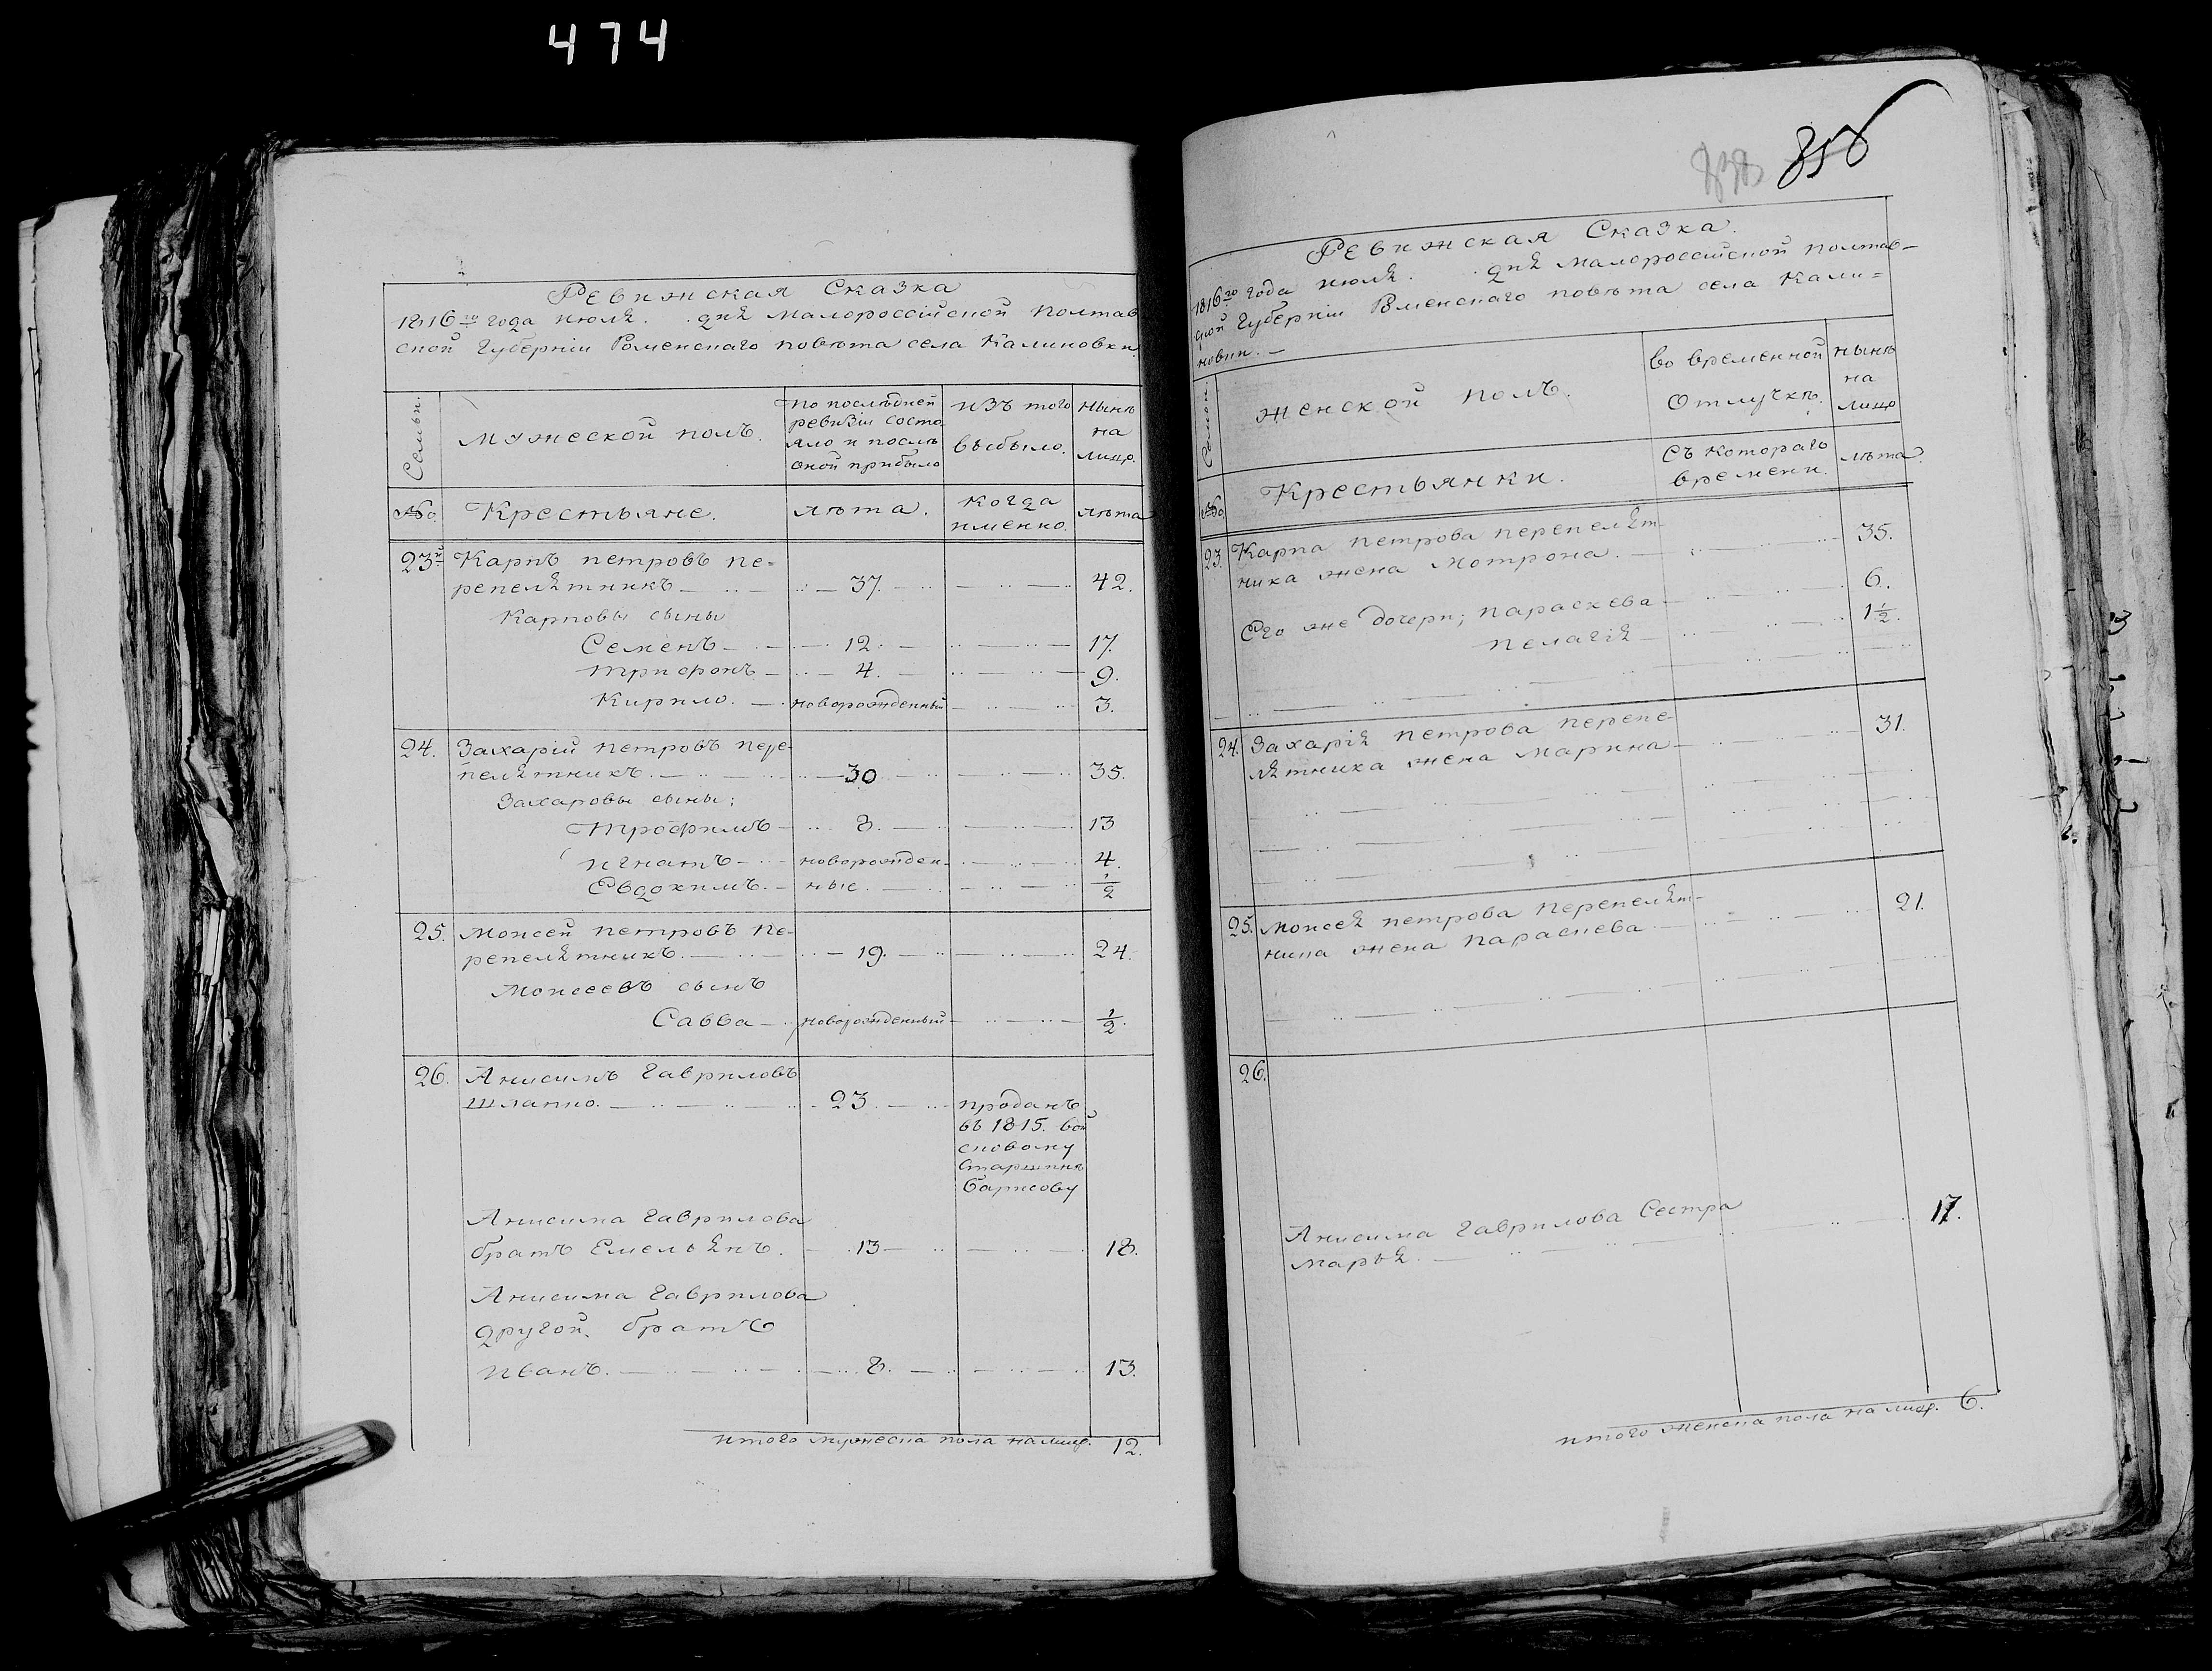 474
Ревижская Сказка
1816го года июля. дня Малороссійской Полтав
ской Губерніи Роменскаго повѣта села Калиновки
Семьи.
Мужеской полъ.
По послѣдней
ревизіи состо
яло и послѣ
оной прибыло
изъ того
выбыло.
нынѣ
на
лицо.
№
Крестьяне.
лѣта.
когда
именно.
лѣта
23й Карпъ петровъ Пе=
репелятникъ 37. 42.
Карповы сыны
Семенъ 12. 17.
Трифонъ 4. 9.
Кирило. новорожденный 3.
24. Захарій петровъ Пере-
пелятникъ. 30 35.
Захаровы сыны;
Трофимъ 8. 13
Игнатъ новорожден- 4.
Евдокимъ. ные. 1/2
25. Моисей петровъ Пе-
репелятникъ. 19. 24.
Моисеевъ сынъ
Савва новорожденный 1/2.
26. Анисимъ Гавриловъ
Шлапко. 23 проданъ
въ 1815. вой
сковому
старшинѣ
Барисову
Анисима Гаврилова
братъ Емельянъ. 13 18.
Анисима Гаврилова
другой братъ
Иванъ. 8. 13.
итого мужеска пола налицо. 12.
858
Ревижская Сказка.
1816го года июля. дня Малороссійской Полтав-
ской Губерніи Роменскаго повѣта села Кали=
новки.
Семьи.
Женской полъ.
во временной
отлучкѣ.
нынѣ
на
лицо
№
Крестьянки.
съ котораго
времени.
лѣта.
23. Карпа петрова перепелят-
ника жена Мотрона. 35.
Его же дочери; Параскева 6.
Пелагія 1 1/2.
24. Захарія петрова Перепе-
лятника жена Марина 31.
25. Моисея петрова Перепелят-
ника жена Параскева 21.
26.
Анисима Гаврилова Сестра
Марья. 17.
итого женска пола налицо. 6.